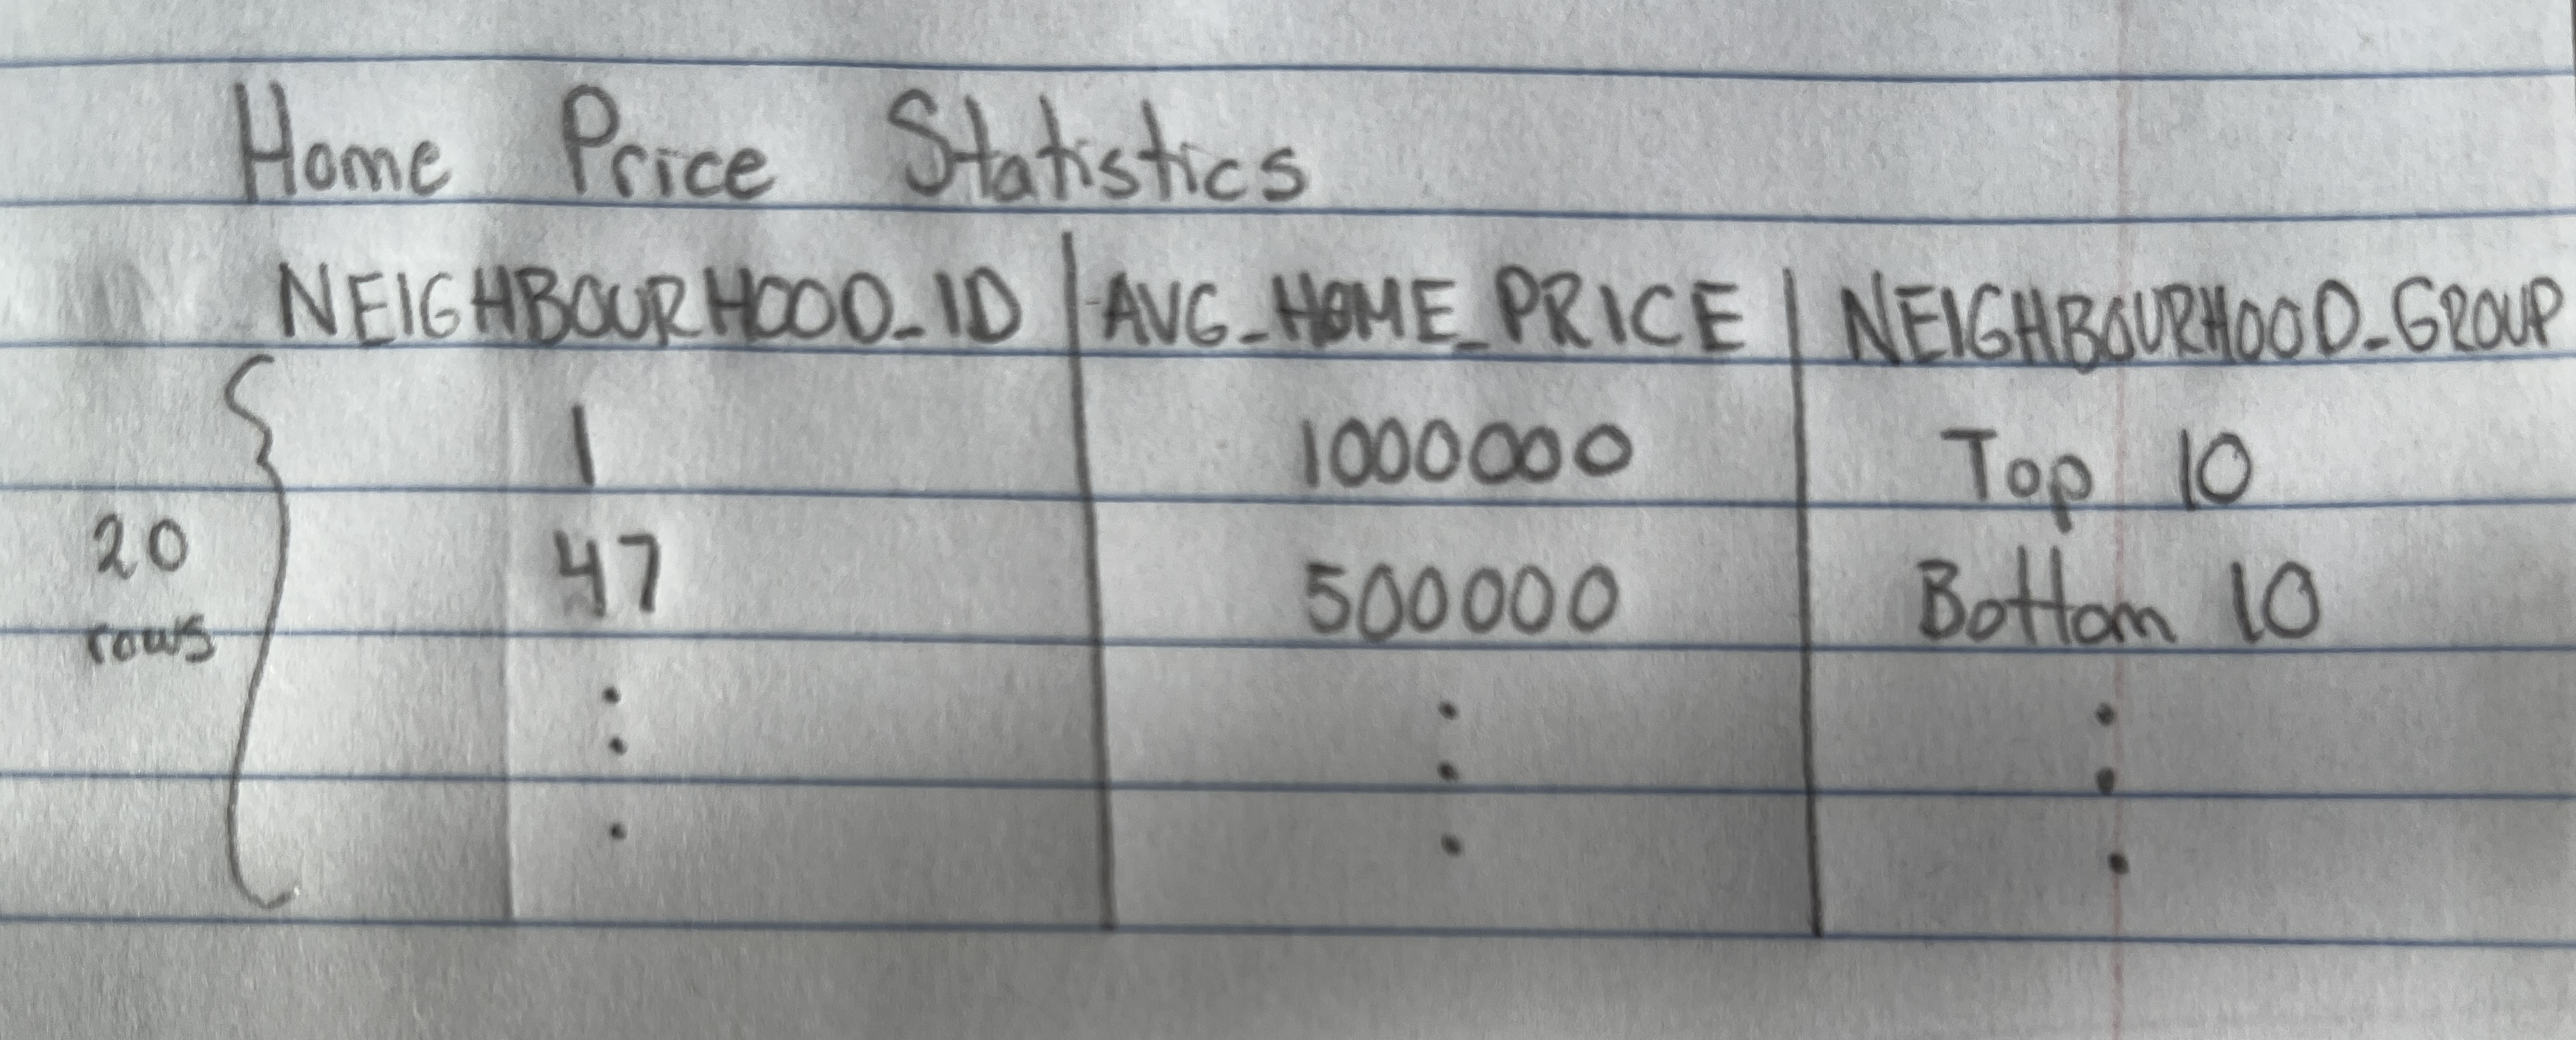 Home Price Statistics
NEIGHBOURHOOD_ID AVG_HOME_PRICE NEIGHBOURHOOD_GROUP
1 1000000 Top 10
47 500000 Bottom 10
20
rows